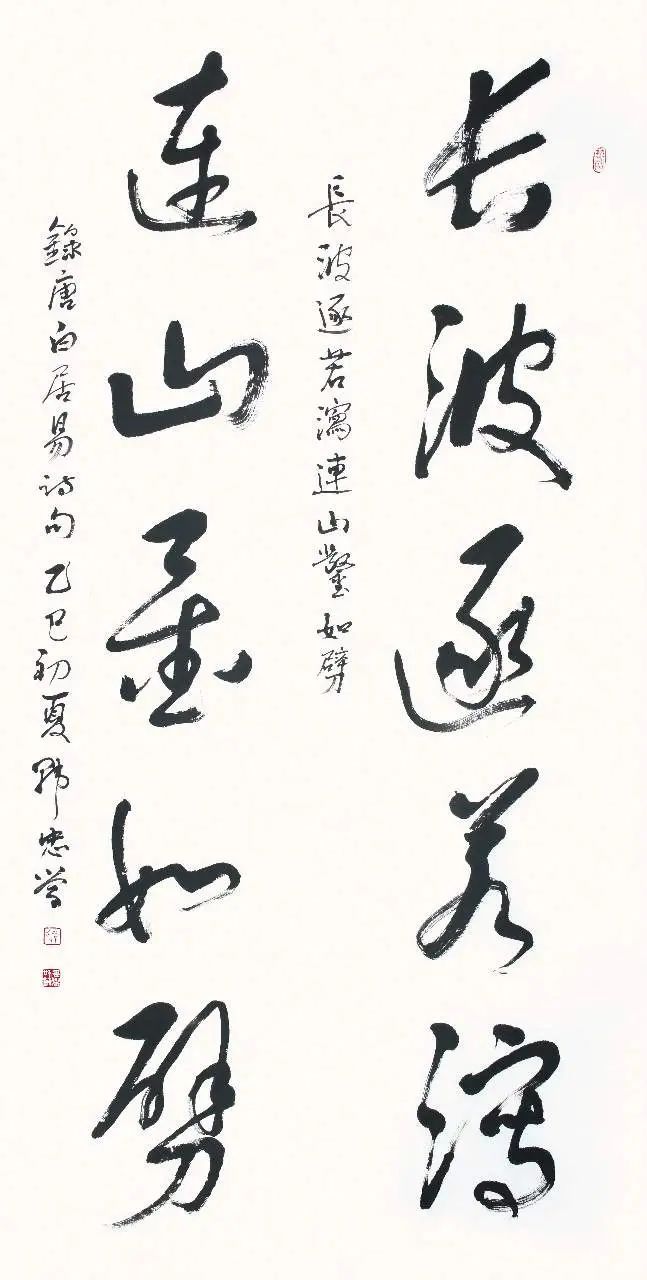 長波逐若瀉
長波逐若瀉連山鑿如劈
連山鑿如劈
錄唐白居易诗句乙巳初夏忠